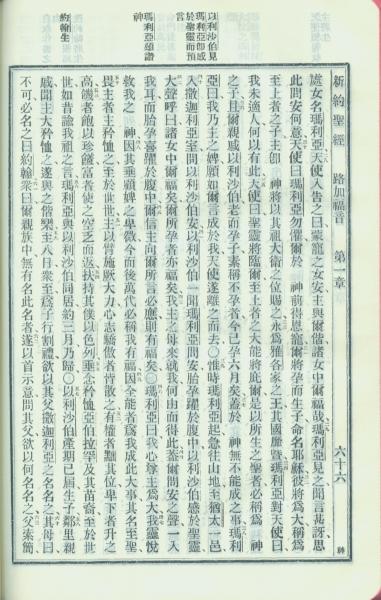 新約聖經 路加福音 第一章 六十六
處女名瑪利亞天使入告之曰蒙寵之女安主與爾偕諸女中爾福哉瑪利亞見之聞言甚訝思
此問安何意天使曰瑪利亞勿懼爾於 神前得恩寵爾將孕而生子命名耶穌彼將爲大稱爲
至上者之子主卽 神將以其祖大衛之位賜之永爲雅各家之王其國靡曁瑪利亞對天使曰
我未適人何以有此天使曰聖靈將臨爾至上者之大能將庇爾是以所生之聖者必稱爲 神
之子且爾親戚以利沙伯老而孕子素稱不孕者今已孕六月矣蓋於 神無不能成之事瑪利
亞曰我乃主之婢願如爾言成於我天使遂離之而去○惟時瑪利亞起急往山地至猶太一邑
以利沙伯見
瑪利亞卽感
於聖靈而預
言
入撒迦利亞室問以利沙伯安以利沙伯一聞瑪利亞問安胎孕躍於腹中以利沙伯感於聖靈
大聲呼曰諸女中爾福矣爾所孕者亦福矣我主之母來就我何由而得此蓋爾問安之聲一入
瑪利亞頌讚
神
我耳而胎孕喜躍於腹中爾信主而爾所言必應則有福矣○瑪利亞曰我心尊主爲大我靈悅
救我之 神因其垂顧婢之卑微今而後萬代必稱我有福因全能者爲我成此大事其名至聖
畏主者主矜恤之至於世世主以臂施厥大力心志驕傲者皆散之有權者黜其位卑下者升之
高饑者飽以珍饈富者使之空乏而返扶持其僕以色列垂念矜恤亞伯拉罕及其苗裔至於世
約翰生
世如昔諭我祖之言瑪利亞與以利沙伯同居約三月乃歸○以利沙伯產期已屆生子鄰里親
戚聞主大矜恤之遂與之偕樂至八日衆至爲子行割禮欲以其父撒迦利亞之名名之其母曰
不可必名之曰約翰衆曰爾親族中無有名此名者遂以首示意問其父欲以何名名之父索簡